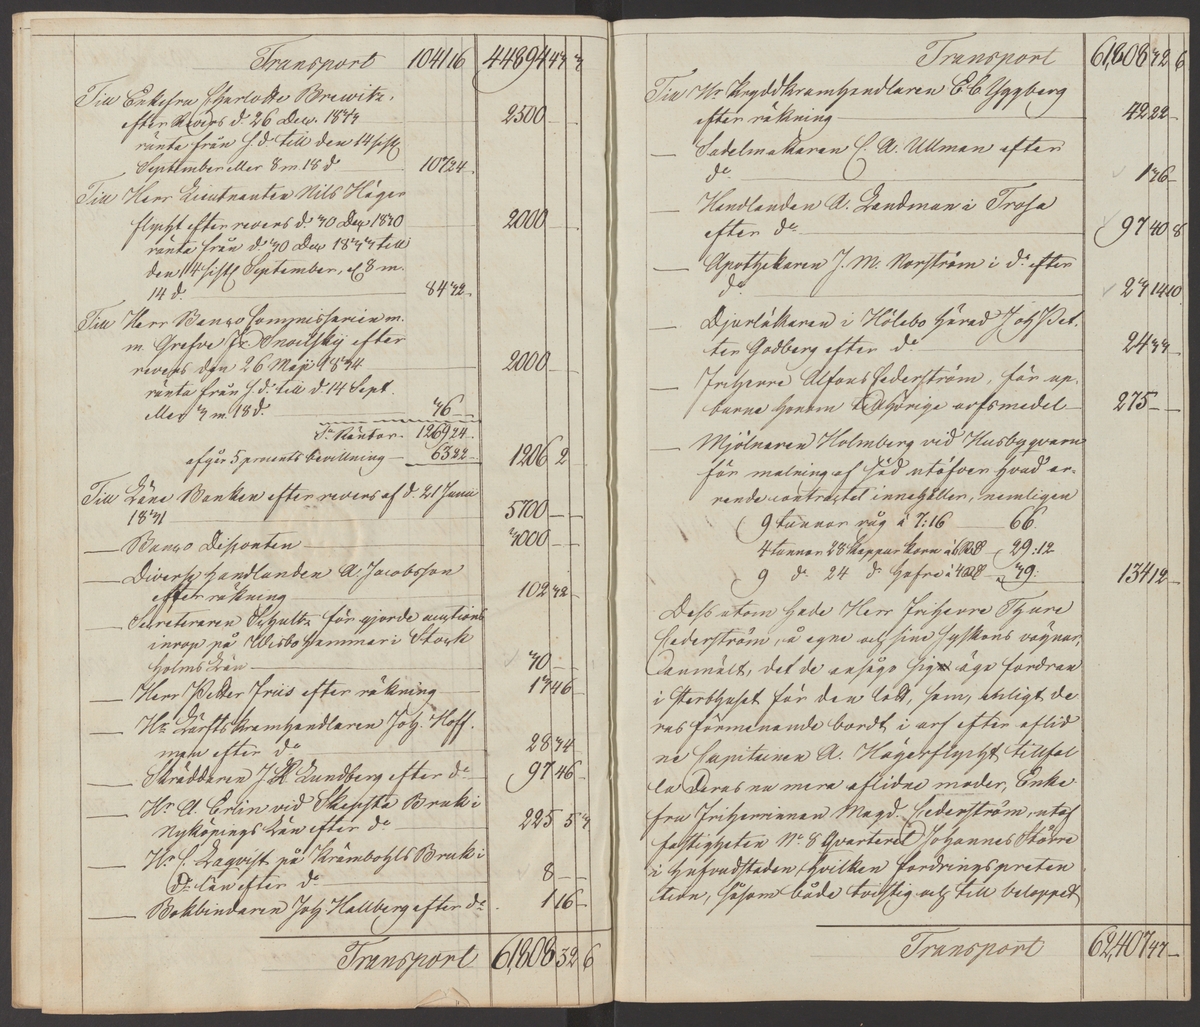 Transport 1041 16 44894 44 3
Till Enkefru Charlotte Brewitz,
efter Revers d. 26 Dec. 1833 2500 — —
ränta från s. d. till den 14 sistl.
September eller 8 m. 18 d. 107 24
Till Herr Lieutnanten Nils Häger
flycht efter revers d. 30 Dec. 1830 2000 — —
ränta från d. 30 Dec. 1833 till
den 14 sistl. September, el. 8 m.
14 d. 84 32
Till Herr Banco Commissarien m.
m. Grefve Snoilsky efter
revers den 26 Maji 1834 2000 — —
ränta från s. d. till d. 14 Sept.
eller 3 m. 18 d. 36 —
Sa Räntor 1269 24
afgår 5 procents bevillning — 63 22 1206 2
Till Läne Banken efter revers af d. 21 Junii
1831 5700 — —
— Banco Disconten 3000 — —
— Diverse handlanden A. Jacobsson
efter räkning 102 32 —
— Secreteraren Schultz för gjorde auctions
inrop på Wesbo hammar i Stock
holms Län 30 — —
— Herr Petter Friis efter räkning 13 46 —
— Hr Kärftskramhandlaren Joh. Hoff-
man efter do 28 34 —
— Skräddaren J. Lundberg efter do 97 46 —
— Hr A. Erlin vid Skeppsta Bruk i
Nyköpings Län efter do 225 5 3
— Hr C. Lagqvist på Krämbohls Bruk i
do Län efter do 8 — —
— Bokbindaren Joh. Hallberg efter do 1 16 —
Transport 61,808 32 6
Transport 61,808 32 6
Till Hr Kryddkramhandlaren E C Ygberg
efter räkning 42 22 —
— Sadelmakaren C. A. Ullman efter
do 1 36 —
— Handlanden A. Landman i Trosa
efter do 97 40 8
— Apothekaren J. M. Norström i do efter
do 23 14 10
— Djurläkaren i Hölebo Härad Joh. Pet-
ter Godberg efter do 24 33 —
— Friherre Alfons Cederström, för up-
burne honom tillhörige arfsmedel 275 — —
— Mjölnaren Holmberg vid Husbyqvarn
för malning af säd utöfver hvad ar-
rende contractet innehåller, nemligen
9 tunnor råg à 7:16 66.
4 tunnor 28 kappar korn à 6 Rd 29:12
9 do 24 do Hafre à 4 Rd 39: 134 12 —
Dessutom hade Herr Friherre Thure
Cederström, å egne och sine syskons vägnar,
anmält, det de ansågo sig äga fordran
i sterbhuset för den lott, som, enligt de
ras förmenande bordt i arf efter aflid
ne Capitainen A. Hägerflycht tillfal
la deras nu mera aflidne moder, Enke
fru Friherrinnan Magd. Cederström, utaf
fastigheten No 8 Qvarteret Johannes Större
i hufvudstaden, hvilken fordringspreten
tion, såsom både tvistig och till beloppet
Transport 62,407 47 —